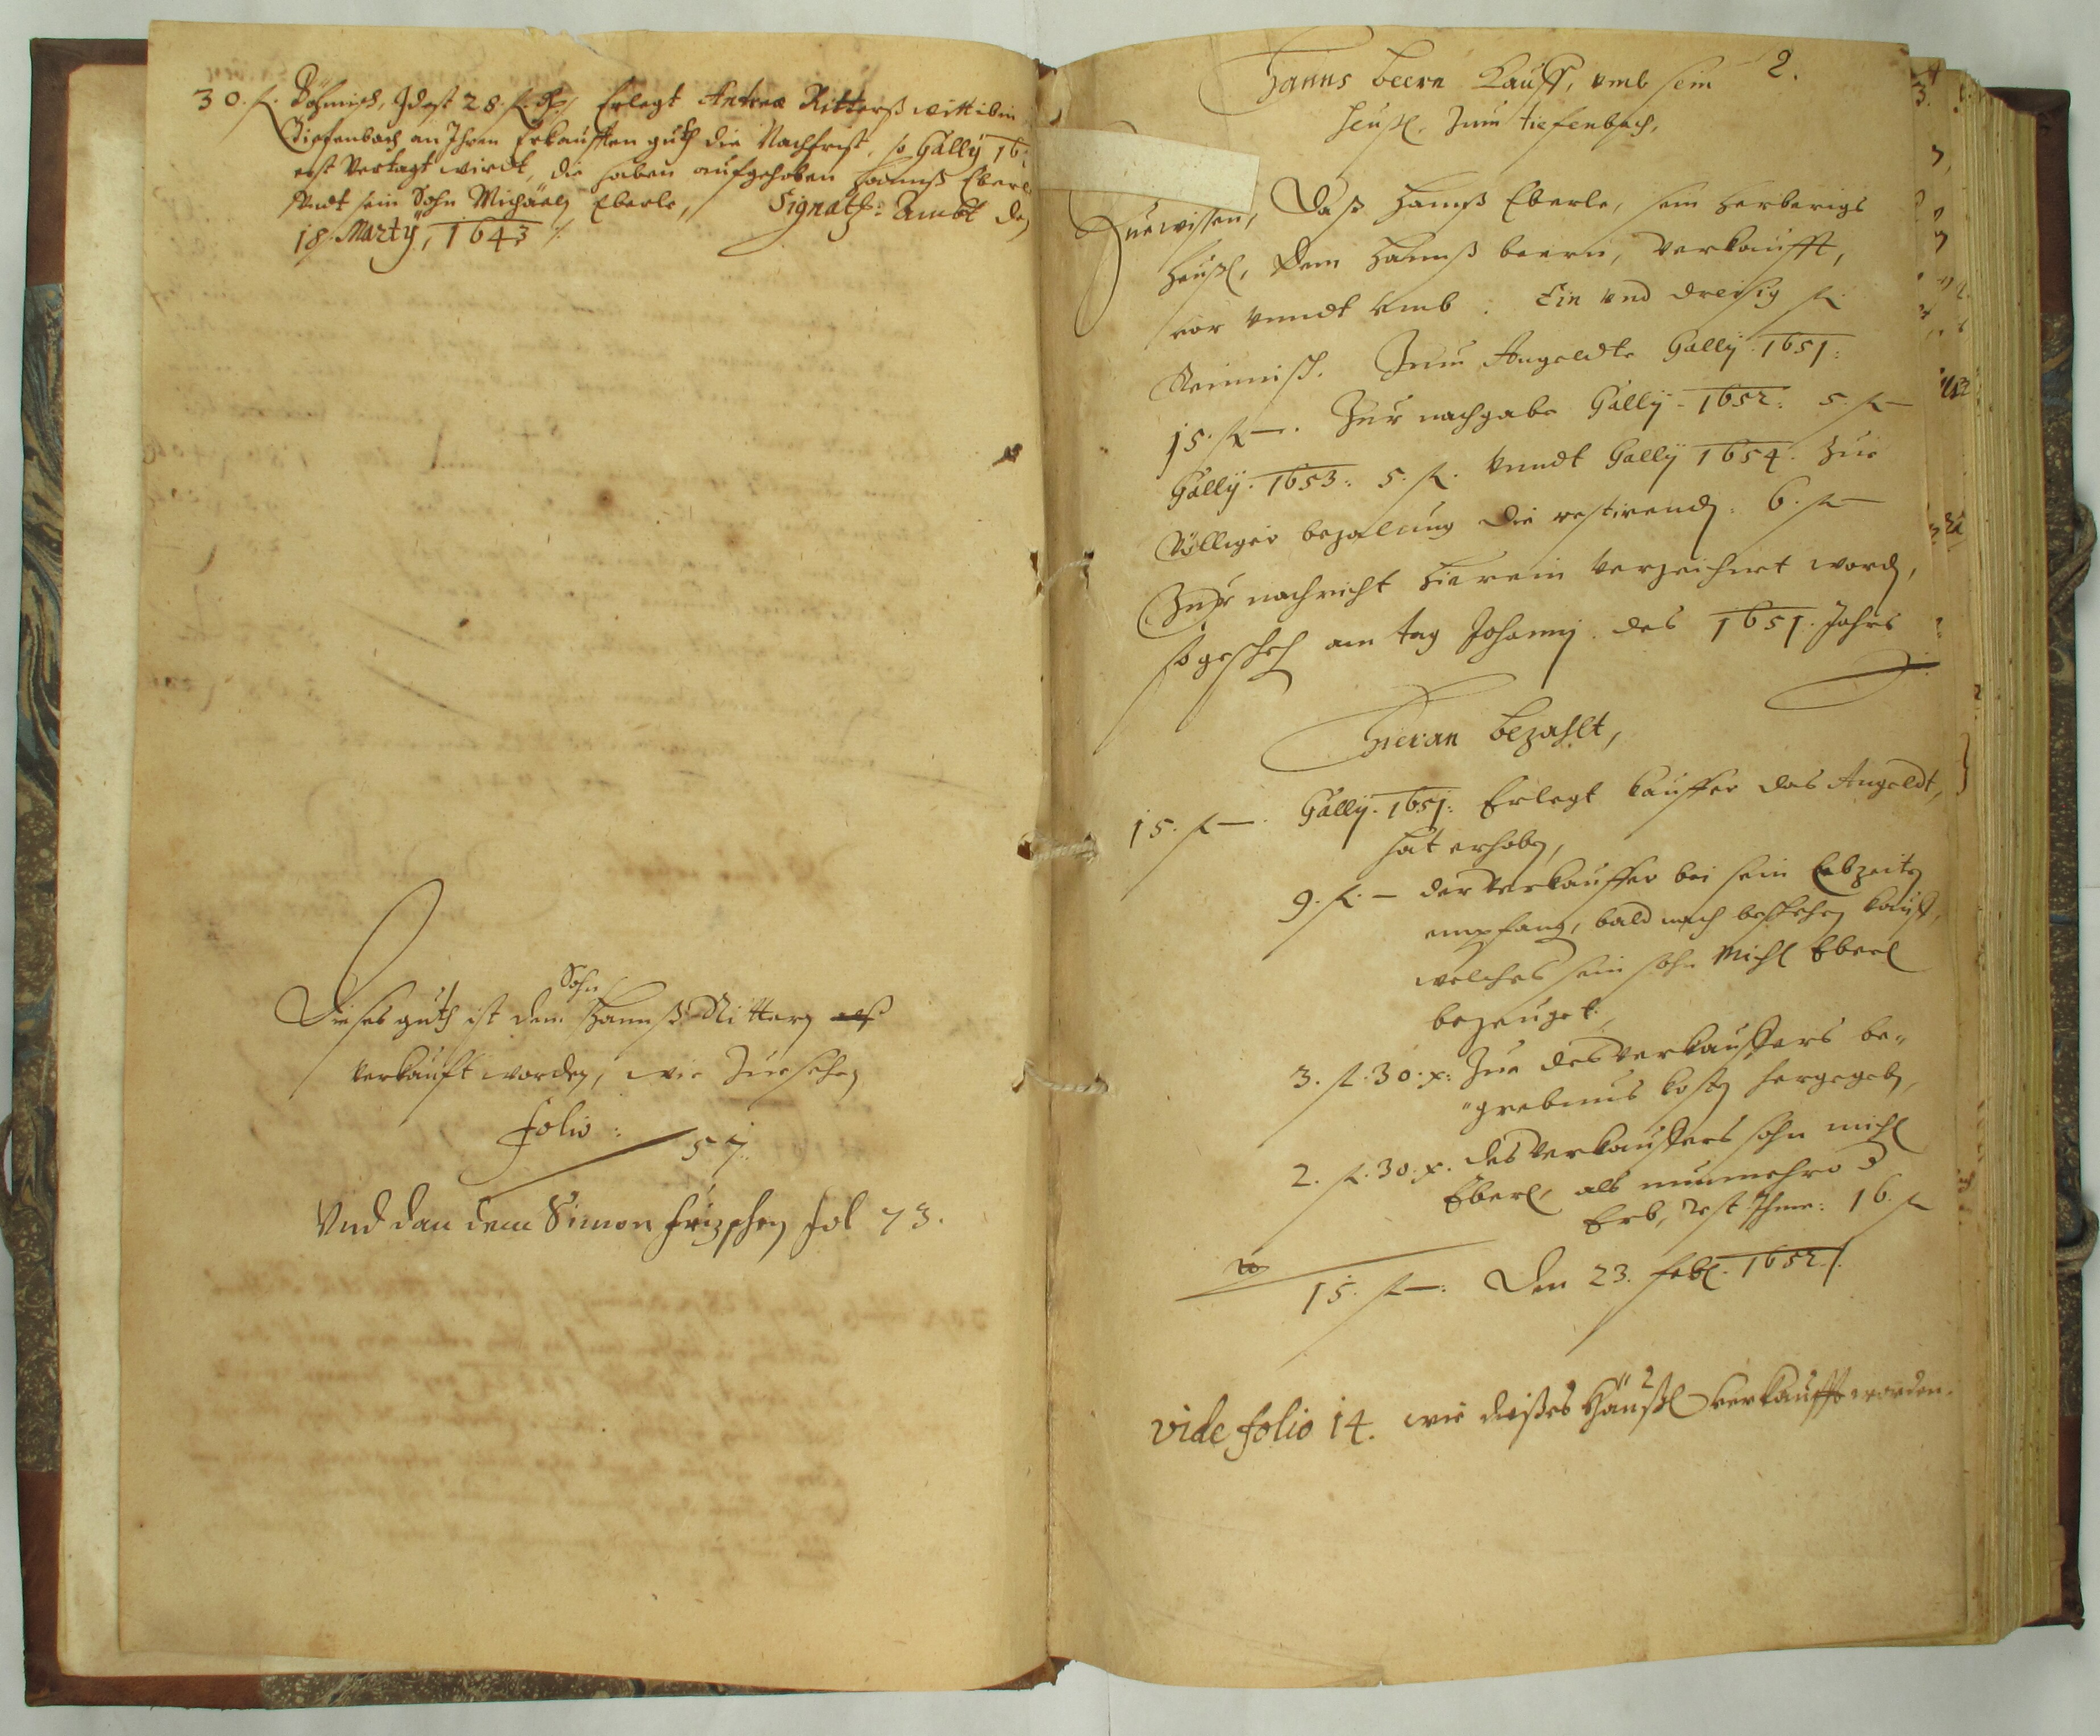 30. f. Böhmisch, Idest 28. f. Rh: Erlegt Andreæ Ritterß wittibin
Tiefenbach an Ihren Erkaufften guth die Nachfrist, so Gally 16
erst Vertagt wirdt, die haben aufgehoben Hannß Eberl
vndt sein Sohn Michäel Eberle, Signat: Ambt den
18. Marty, 1643
Sohn
Dieses guth ist dem Hannß Rittern
verkauft worden, wie Zuesehen
folio: 57.
Vnd dan dem Simon fol 73.
2.
Hanns beern Kauff, vmb sein
heußl, Zum tiefenbach,
Zue wissen, Daß Hannß Eberle, sein Herberigs
Heußl, dem Hannß beern, verkaufft,
vor vnndt vmb: Ein vnd dreisig f.
Reinnisch. Zum Angeldte Gally. 1651:
15. f —. Zur nachgabe Gally. 1652: 5. f —
Gally. 1653: 5. f. vnndt Gally 1654. Zue
Völliger bezalung die restirenden: 6. f —
Zur nachricht hierein verzeichnet worden,
so geschehen am tag Johannj. des 1651. Jahrs
Hieran bezahlt,
15. f —. Gally. 1651: Erlegt kauffer das Angeldt,
hat erhoben,
9. f. — der verkauffer bei sein Lebzeiten
empfang, bald nach beschehen kauff,
welches sein sohn Michl Eberl
bezeuget.
3. f. 30. x: Zue des verkauffers be-
grebnus kosten hergegeben,
2. f. 30. x. des verkauffers sohn michl
Eberl, als nunmehro d
Erb, Rest Ihme: 16. f
15. f —: Den 23. feb. 1652.
vide folio 14. wie dießes Häußl verkaufft worden.